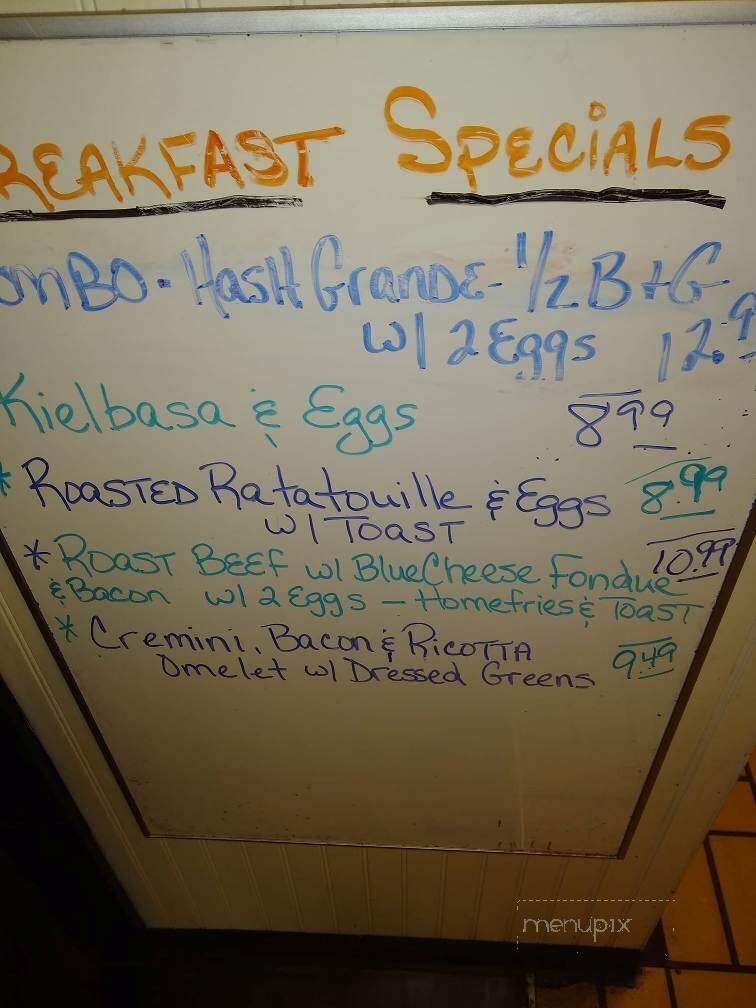 REAKFAST SPECIALS
OMBO - HASH GRANDE - 1/2 B+G
w/ 2 Eggs 12.9
Kielbasa & Eggs 8.99
* ROASTED Ratatouille & Eggs 8.99
w/ TOAST
* ROAST BEEF w/ BlueCheese Fondue 10.99
& Bacon w/ 2 Eggs - Homefries & TOAST
* Cremini, Bacon & RICOTTA
Omelet w/ Dressed Greens 9.49
menupix